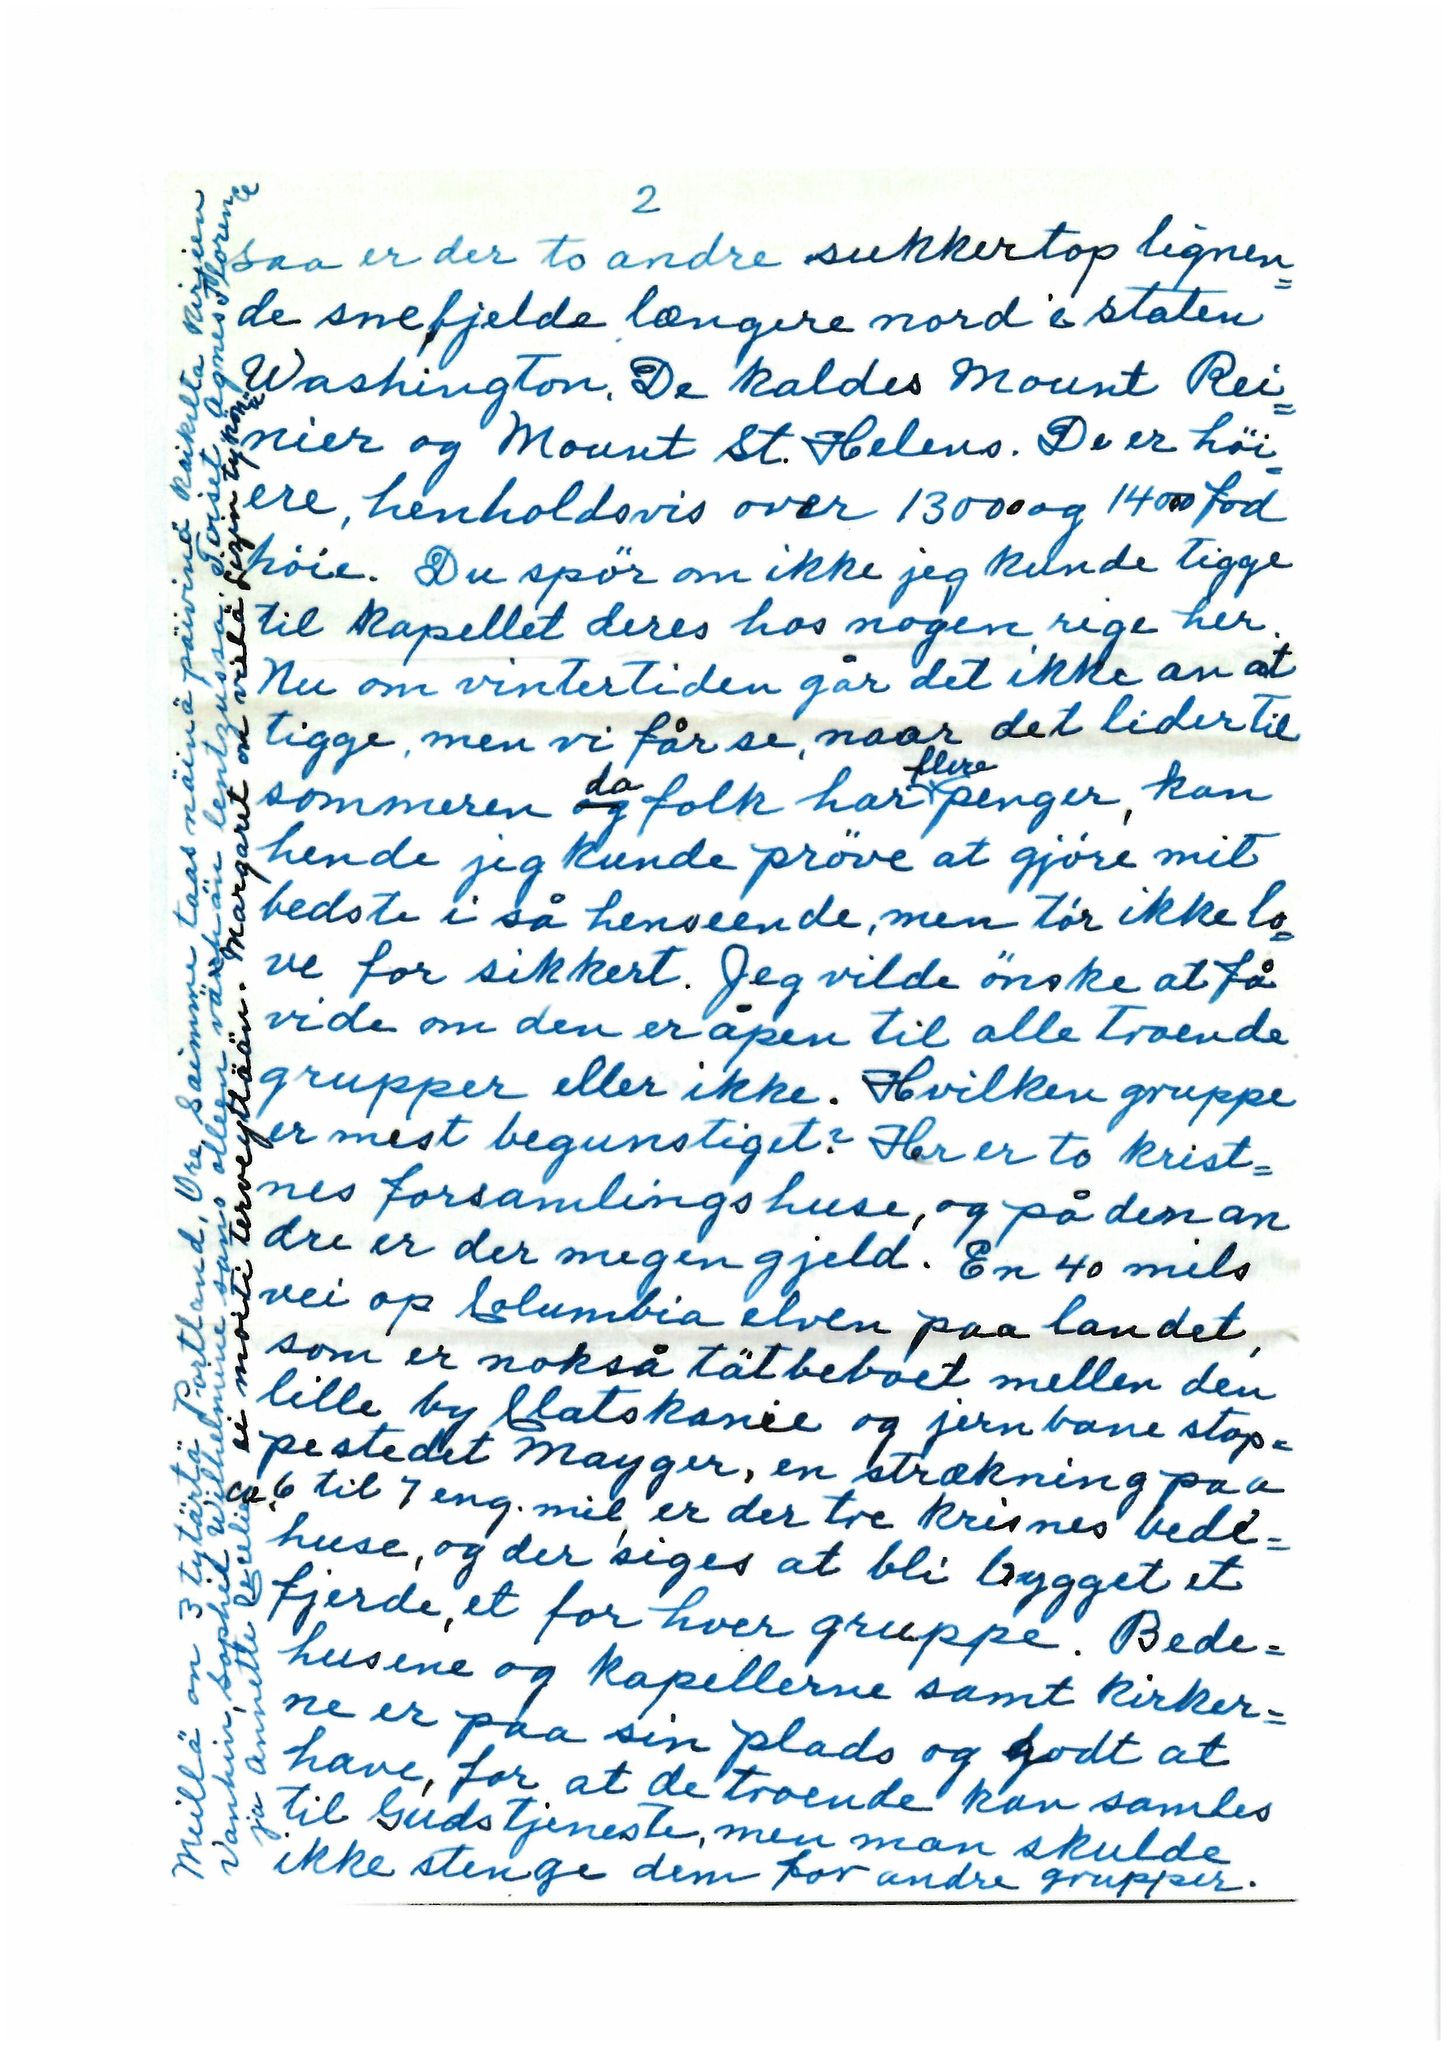 2
saa er der to andre sukkertop lignen=
de snefjelde længere nord i staten
Washington. De kaldes Mount Rei=
nier og Mount St. Helens. De er höi=
ere, henholdsvis over 13000 og 14000 fod
höie. Du spör om ikke jeg kunde tigge
til kapellet deres hos nogen rige her.
Nu om vintertiden går det ikke an at
tigge, men vi får se, naar det lider til
sommeren da folk har flere penger, kan
hende jeg kunde pröve at gjöre mit
bedste i så henseende, men tör ikke lo=
ve for sikkert. Jeg vilde önske at få
vide om den er åpen til alle troende
grupper eller ikke. Hvilken gruppe
er mest begunstiget? Her er to krist=
nes forsamlingshuse, og på den an
dre er der megen gjeld. En 40 mils
vei op Columbia elven paa landet,
som er nokså tätbeboet mellen den
lille by Clatskanie og jernbane stop=
pestedet Mayger, en strækning paa
ca. 6 til 7 eng. mil, er der tre krisnes bede=
huse, og der siges at bli bygget et
fjerde, et for hver gruppe. Bede=
husene og kapellerne samt kirker=
ne er paa sin plads og godt at
have, for at de troende kan samles
til Gudstjeneste, men man skulde
ikke stenge dem for andre grupper.
Meillä on 3 tytärtä Portland, Ore. Saimme taas näinä päivinä kaikilta kirjeen
Vanhin, Sophie Wilhelmine sano olleen vähän lentzussa. Toiset Agnes Florence
ja Annette Cecelie ei moiti terveyttään. Margaret on vielä Suzin tykönä